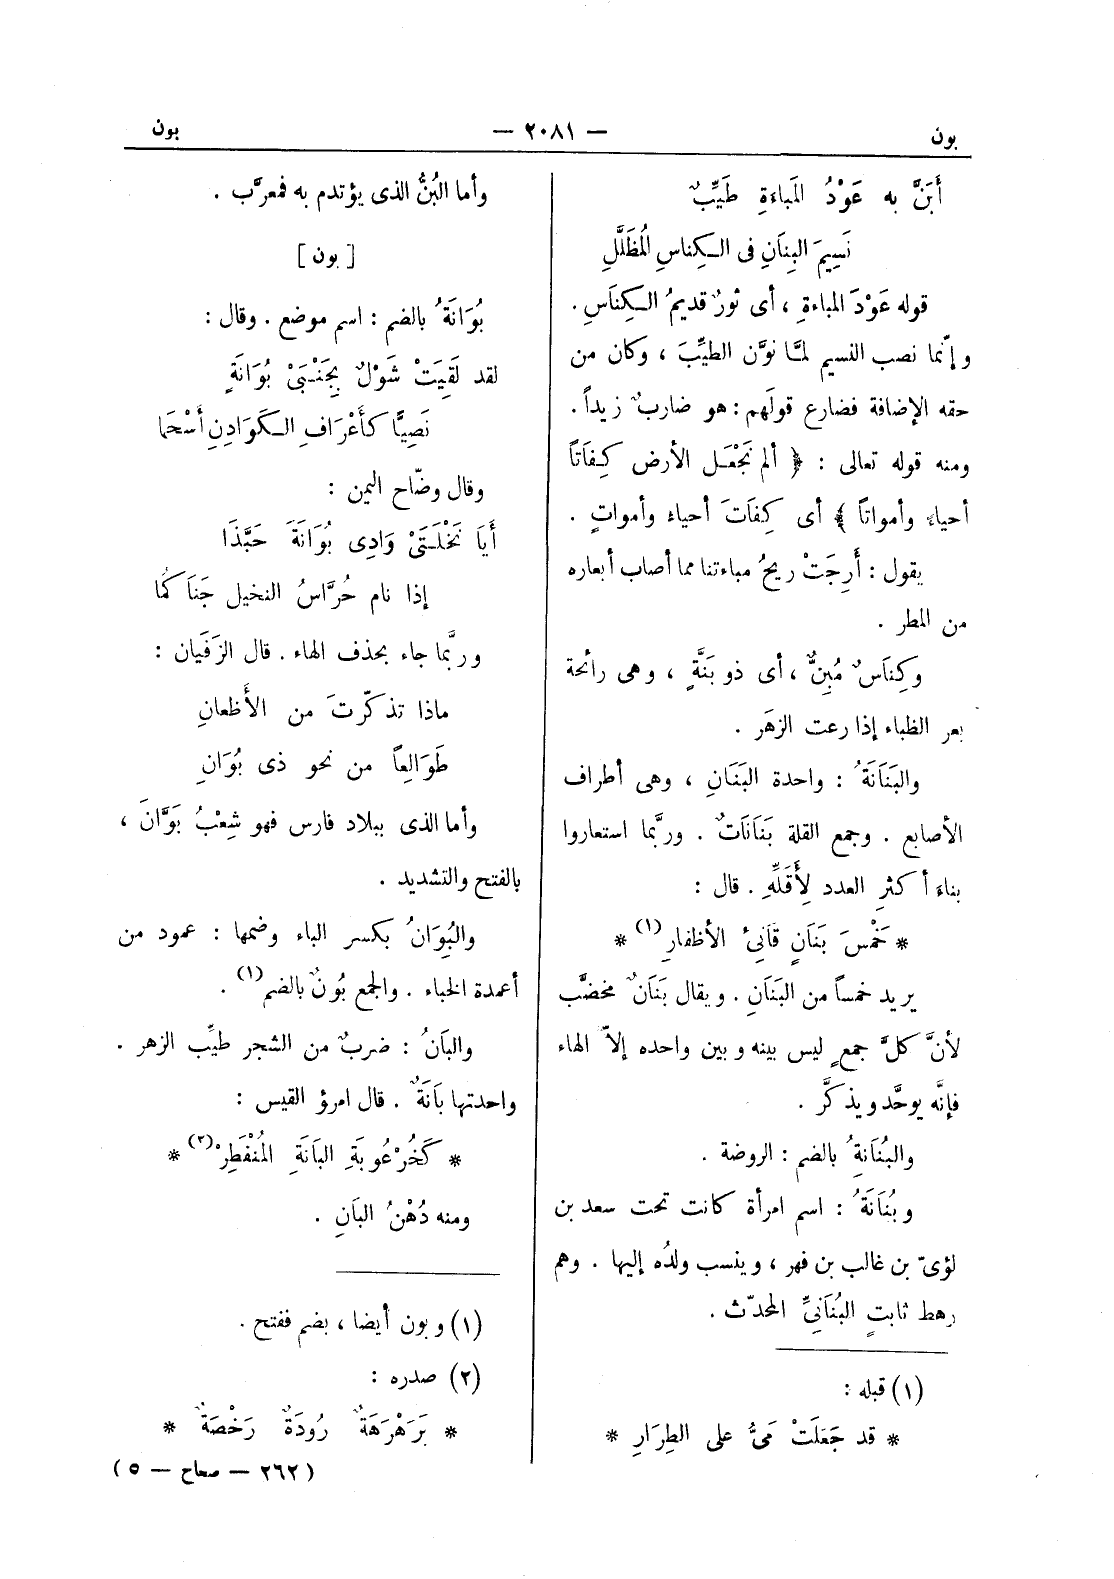 بون
— ٢٠٨١ —
بون
أَبَنَّ به عَوْدُ المَباءَةِ طَيِّبٌ
نَسِيمَ البِنَانِ فى الكِناسِ المُظَلَّلِ
قوله عَوْدَ المباءةِ ، أى ثورٌ قديمُ الكِنَاسِ .
وإنّما نصب النسيم لمَّا نوَّن الطيِّبَ ، وكان من
حقه الإضافة فضارع قولَهم : هو ضاربٌ زيداً .
ومنه قوله تعالى : ﴿ ألم نَجْعَل الأرضَ كِفَاتاً
أحياءً وأمواتاً ﴾ أى كِفَاتَ أحياءٍ وأمواتٍ .
يقول : أَرِجَتْ ريحُ مباءتنا مما أصاب أبعاره
من المطر .
وكِنَاسٌ مُبِنٌّ ، أى ذو بَنَّةٍ ، وهى رائحة
بعر الظباء إذا رعت الزهَر .
والبَنَانَةُ : واحدة البَنَانِ ، وهى أطراف
الأصابع . وجمع القلة بَنَانَاتٌ . وربَّما استعاروا
بناءَ أكثرِ العدد لِأَقَلِّهِ . قال :
* خَمْسَ بَنَانٍ قَانِئِ الأظفارِ (١) *
يريد خمساً من البَنَانِ . ويقال بَنَانٌ مخضَّب
لأنَّ كلَّ جمعٍ ليس بينه وبين واحده إلاّ الهاء
فإنَّه يوحَّد ويذكَّر .
والبُنَانةُ بالضم : الروضة .
وبُنَانَةُ : اسم امرأة كانت تحت سعد بن
لؤىّ بن غالب بن فهر ، وينسب ولدُه إليها . وهم
رهط ثابتٍ البُنَانِىِّ المحدّث .
(١) قبله :
* قد جَعَلَتْ مَىُّ على الطِرَارِ *
وأما البُنُّ الذى يؤتدم به فمعرَّب .
[ بون ]
بُوَانَةُ بالضم : اسم موضع . وقال :
لقد لَقِيَتْ شَوْلٌ بِجَنْبَىْ بُوَانَةٍ
نَصِيًّا كأَعْرَافِ الكَوَادِنِ أَسْحَمَا
وقال وضّاح اليمن :
أَيَا نَخْلَتَىْ وَادِى بُوَانَةَ حَبَّذَا
إذا نام حُرَّاسُ النخيل جَنَاكُمَا
وربَّما جاء بحذف الهاء . قال الزَفَيان :
ماذا تذكّرتَ من الأَظعانِ
طَوَالِعاً من نحو ذى بُوَانِ
وأما الذى ببلاد فارس فهو شِعْبُ بَوَّانَ ،
بالفتح والتشديد .
والبُِوَانُ بكسر الباء وضمها : عمود من
أعمدة الخباء . والجمع بُونٌ بالضم (١) .
والبَانُ : ضربٌ من الشجر طيِّب الزهر .
واحدتها بَانَةٌ . قال امرؤ القيس :
* كَخُرْعُوبَةِ البَانَةِ المُنْفَطِرْ (٢) *
ومنه دُهْنُ البَانِ .
(١) وبون أيضا ، بضم ففتح .
(٢) صدره :
* بَرَهْرَهَةٌ رُودَةٌ رَخْصَةٌ *
(٢٦٢ — صحاح — ٥)